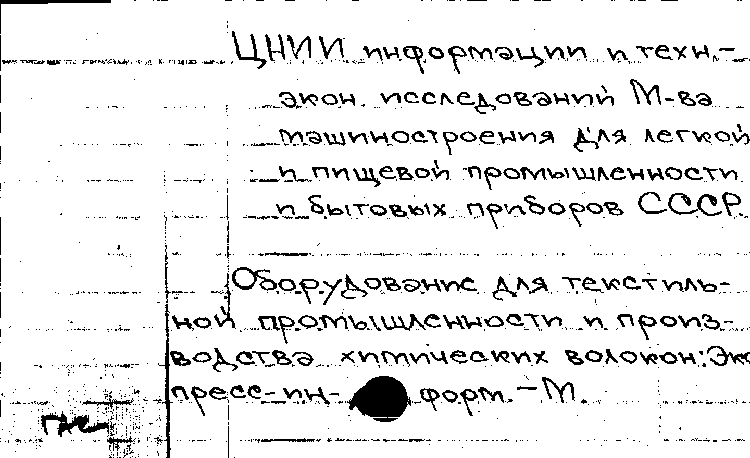 ЦНИИ информации и техн.-
экон. исследований М-ва
машиностроения для легкой
и пищевой промышленности
и бытовых приборов СССР.
Оборудование для текстиль-
ной промышленности и произ-
водства химических волокон: Экс
пресс-ин- форм. - М.